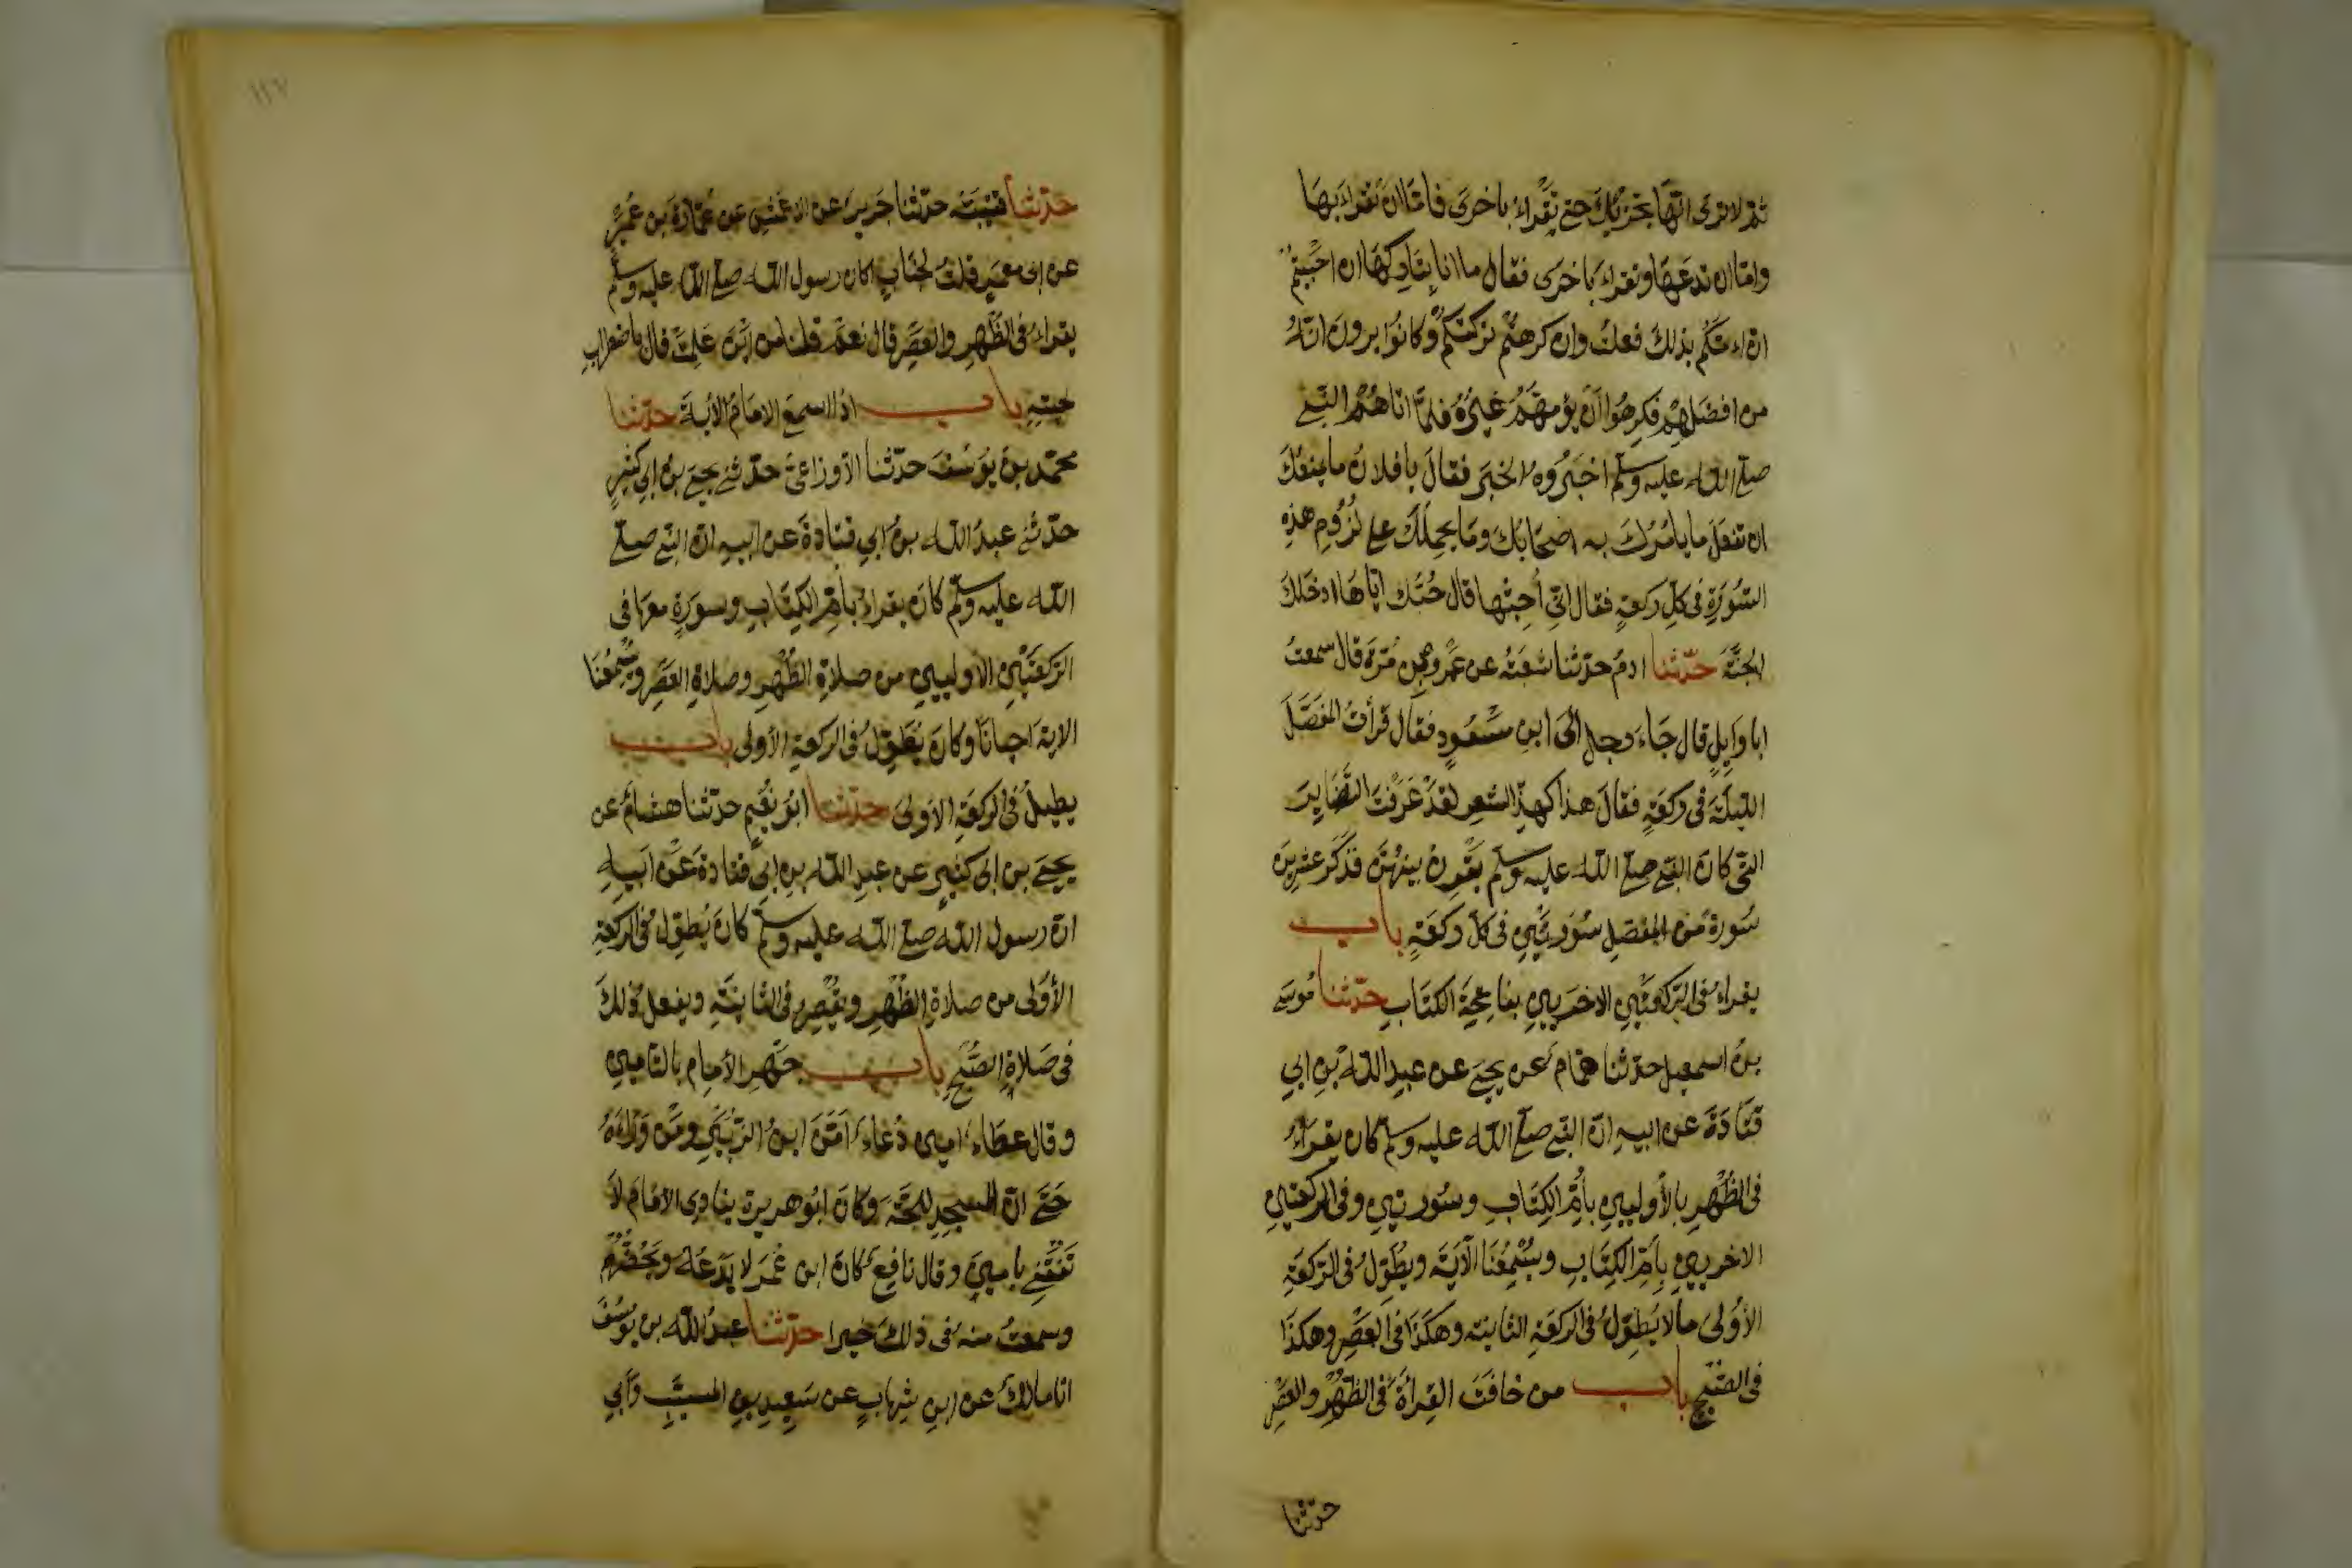 ثم لا ترى انها تجزيك حتى تقراء باخرى فاما ان تقراء بها
واما ان تدعها وتقراء باخرى فقال ما انا بتاركها ان احببتم
ان اءمكم بذلك فعلت وان كرهتم تركتكم وكانوا يرون انه
من افضلهم فكرهوا ان يؤمهم غيره فلما اتاهم النبي
صلى الله عليه وسلم اخبروه الخبر فقال يا فلان ما يمنعك
ان تفعل ما يامرك به اصحابك وما يحملك على لزوم هذه
السورة في كل ركعة فقال اني أحبها قال حبك اياها ادخلك
الجنة حدثنا ادم حدثنا شعبة عن عمرو بن مرة قال سمعت
ابا وايل قال جاء رجل الى ابن مسعود فقال قرأت المفصل
الليلة في ركعة فقال هذا كهذ الشعر لقد عرفت النضاير
التي كان النبي صلى الله عليه وسلم يقرن بينهن فذكر عشرين
سورة من المفصل سورتين في كل ركعة باب
يقراء في الركعتين الاخريين بفاتحة الكتاب حدثنا موسى
بن اسمعيل حدثنا همام عن يحيى عن عبد الله بن ابي
قتادة عن ابيه ان النبي صلى الله عليه وسلم كان يقراء
في الظهر بالأوليين بأم الكتاب وسورتين وفي الركعتين
الاخريين بأم الكتاب ويسمعنا الآية ويطول في الركعة
الأولى مالا يطول في الركعة الثانية وهكذا في العصر وهكذا
في الصبح باب من خافت القرأة في الظهر والعصر
حدثنا
١٢٧
حدثنا قتيبة حدثنا جرير عن الاعمش عن عمارة بن عمير
عن ابي معمر قلت لخباب اكان رسول الله صلى الله عليه وسلم
يقراء في الظهر والعصر قال نعم قلنا من اين علمت قال باضطراب
لحيته باب اذا اسمع الامام الأية حدثنا
محمد بن يوسف حدثنا الأوزاعي حدثني يحيى بن ابي كثير
حدثني عبد الله بن ابي قتادة عن ابيه ان النبي صلى
الله عليه وسلم كان يقراء بأم الكتاب وسورة معها في
الركعتين الاوليين من صلاة الظهر وصلاة العصر ويسمعنا
الاية احيانا وكان يطول في الركعة الأولى باب
يطيل في الركعة الأولى حدثنا ابو نعيم حدثنا هشام عن
يحيى بن ابي كثير عن عبد الله بن ابي قتادة عن ابيه
ان رسول الله صلى الله عليه وسلم كان يطول في الركعة
الأولى من صلاة الظهر ويقصر في الثانية ويفعل ذلك
في صلاة الصبح باب جهر الأمام بالتامين
وقال عطاء امين دعاء امن ابن الزبير ومن وراءه
حتى ان للمسجد للجة وكان ابو هريرة ينادى الامام لا
تفتني بامين وقال نافع كان ابن عمر لا يدعه ويحضهم
وسمعت منه في ذلك خيرا حدثنا عبد الله بن يوسف
انا مالك عن ابن شهاب عن سعيد بن المسيب وأبي